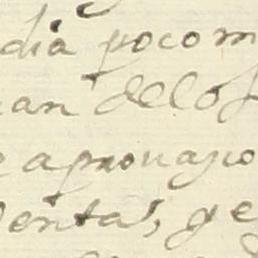 dia pocom
an dellos
aprouaçio
ventas, ge